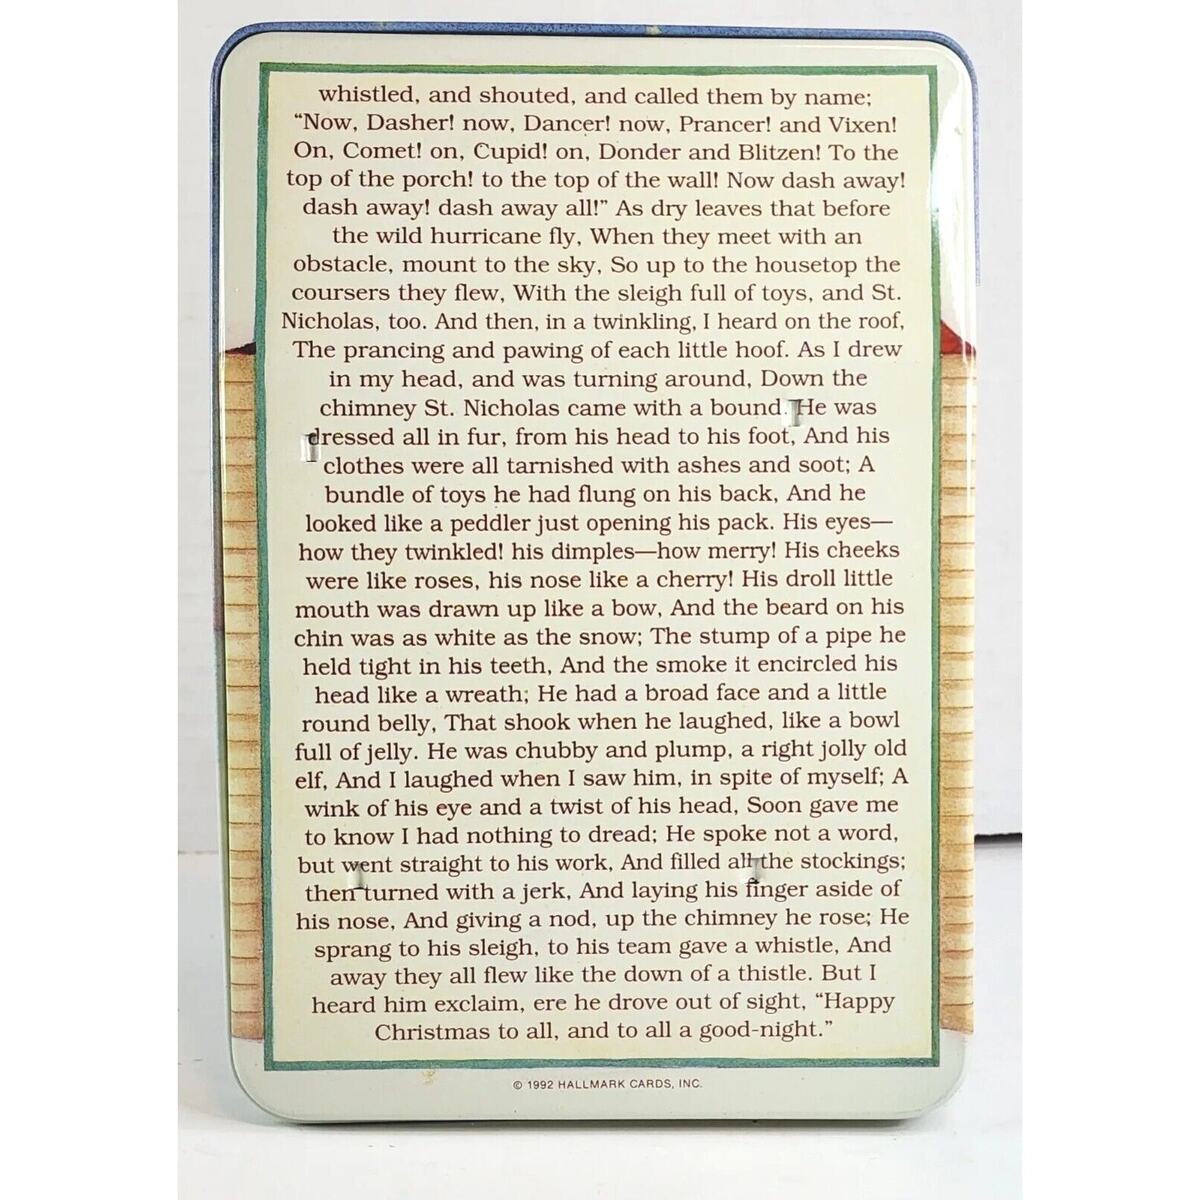 whistled, and shouted, and called them by name;
“Now, Dasher! now, Dancer! now, Prancer! and Vixen!
On, Comet! on, Cupid! on, Donder and Blitzen! To the
top of the porch! to the top of the wall! Now dash away!
dash away! dash away all!” As dry leaves that before
the wild hurricane fly, When they meet with an
obstacle, mount to the sky, So up to the housetop the
coursers they flew, With the sleigh full of toys, and St.
Nicholas, too. And then, in a twinkling, I heard on the roof,
The prancing and pawing of each little hoof. As I drew
in my head, and was turning around, Down the
chimney St. Nicholas came with a bound. He was
dressed all in fur, from his head to his foot, And his
clothes were all tarnished with ashes and soot; A
bundle of toys he had flung on his back, And he
looked like a peddler just opening his pack. His eyes—
how they twinkled! his dimples—how merry! His cheeks
were like roses, his nose like a cherry! His droll little
mouth was drawn up like a bow, And the beard on his
chin was as white as the snow; The stump of a pipe he
held tight in his teeth, And the smoke it encircled his
head like a wreath; He had a broad face and a little
round belly, That shook when he laughed, like a bowl
full of jelly. He was chubby and plump, a right jolly old
elf, And I laughed when I saw him, in spite of myself; A
wink of his eye and a twist of his head, Soon gave me
to know I had nothing to dread; He spoke not a word,
but went straight to his work, And filled all the stockings;
then turned with a jerk, And laying his finger aside of
his nose, And giving a nod, up the chimney he rose; He
sprang to his sleigh, to his team gave a whistle, And
away they all flew like the down of a thistle. But I
heard him exclaim, ere he drove out of sight, “Happy
Christmas to all, and to all a good-night.”
© 1992 HALLMARK CARDS, INC.